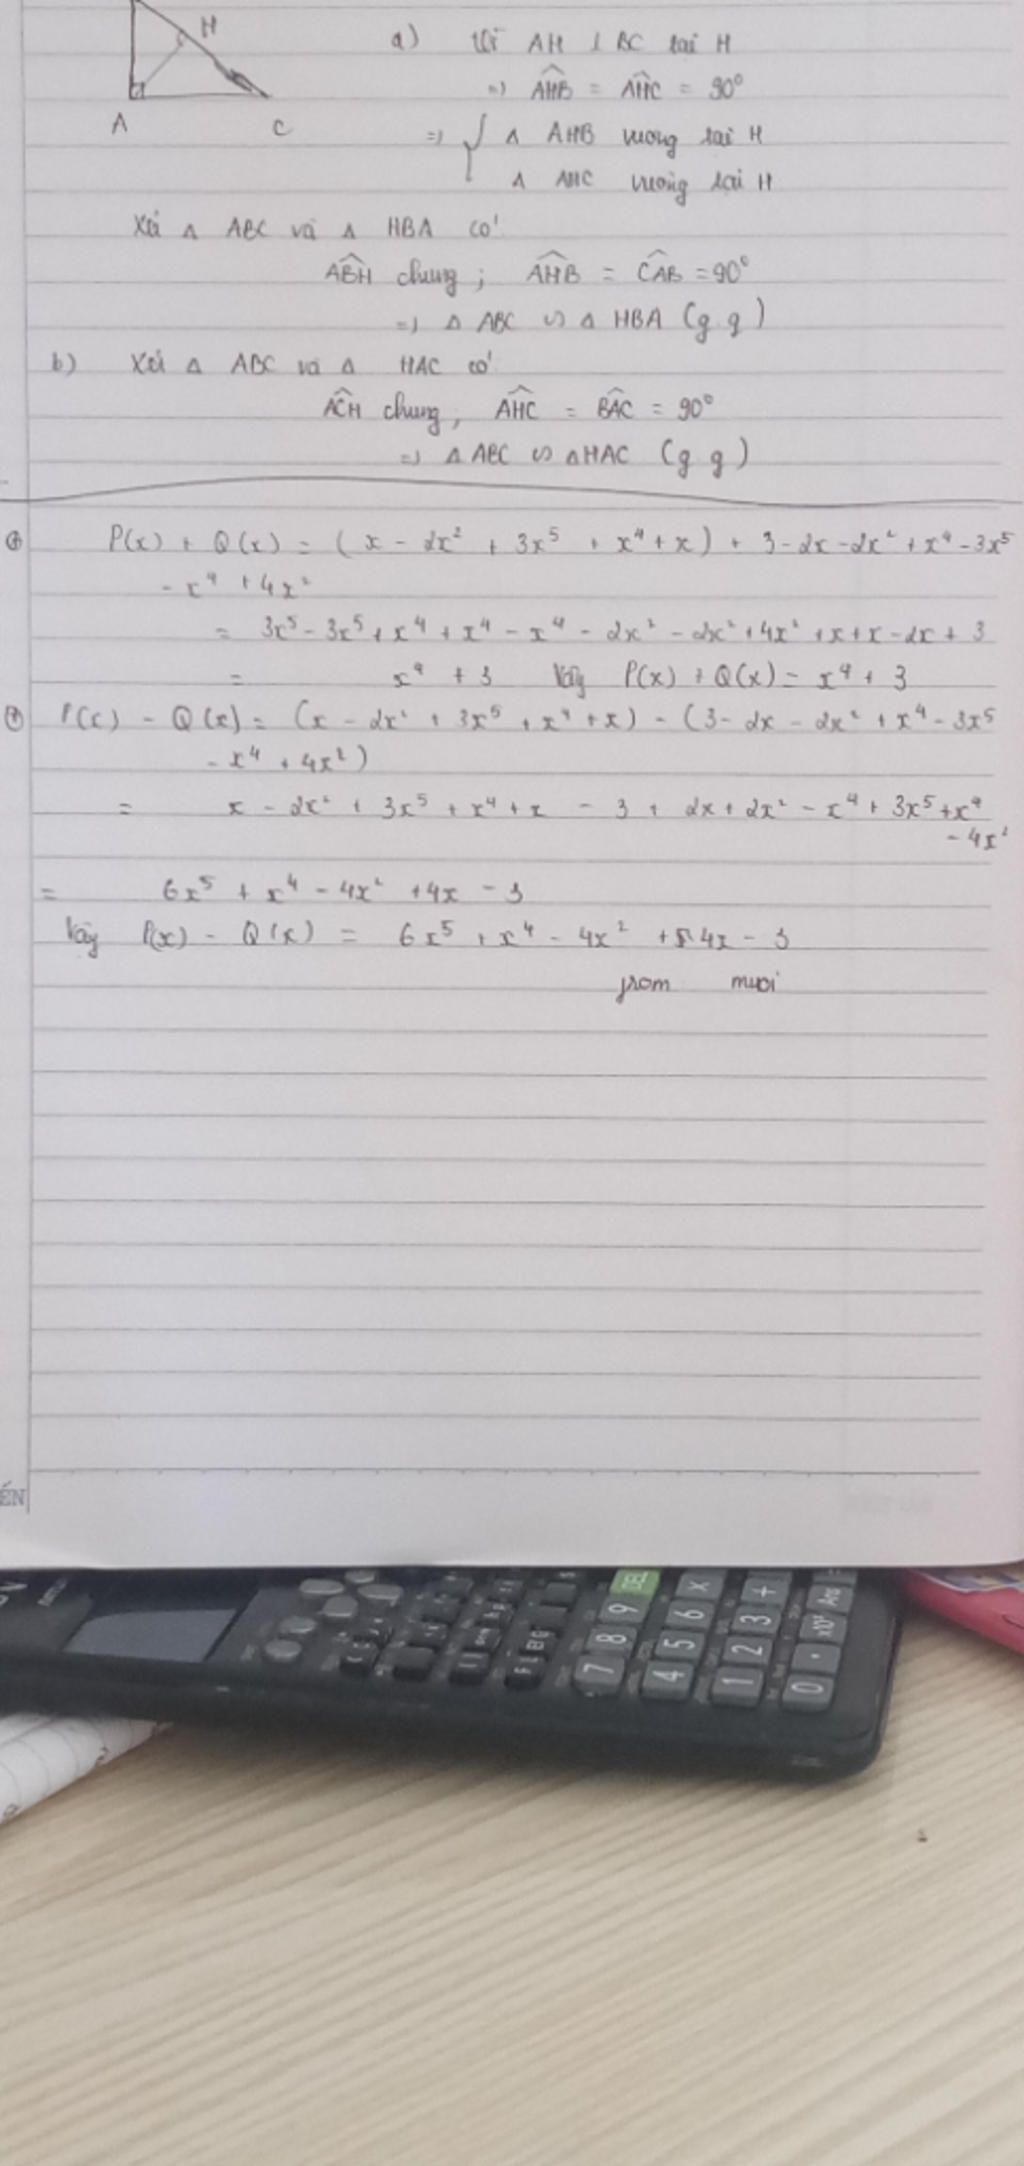 H
A
C
a) Vì AH ⊥ BC tại H
=) AHB = AHC = 90°
=) { Δ AHB vuông tại H
Δ AHC vuông tại H
Xét Δ ABC và Δ HBA có
ABH chung ; AHB = CAB = 90°
=) Δ ABC ∽ Δ HBA (g g)
b) Xét Δ ABC và Δ HAC có
ACH chung, AHC = BAC = 90°
=) Δ ABC ∽ Δ HAC (g g)
P(x) + Q(x) = (x - 2x² + 3x⁵ + x⁴ + x) + 3 - 2x - 2x² + x⁴ - 3x⁵
- x⁴ + 4x²
= 3x⁵ - 3x⁵ + x⁴ + x⁴ - x⁴ - 2x² - 2x² + 4x² + x + x - 2x + 3
= x⁴ + 3 Vậy P(x) + Q(x) = x⁴ + 3
P(x) - Q(x) = (x - 2x² + 3x⁵ + x⁴ + x) - (3 - 2x - 2x² + x⁴ - 3x⁵
- x⁴ + 4x²)
= x - 2x² + 3x⁵ + x⁴ + x - 3 + 2x + 2x² - x⁴ + 3x⁵ + x⁴
- 4x²
= 6x⁵ + x⁴ - 4x² + 4x - 3
Vậy P(x) - Q(x) = 6x⁵ + x⁴ - 4x² + 4x - 3
jrom muoi
ẾN
DEL
7 8 9
4 5 6 ×
1 2 3 +
0 . Ans